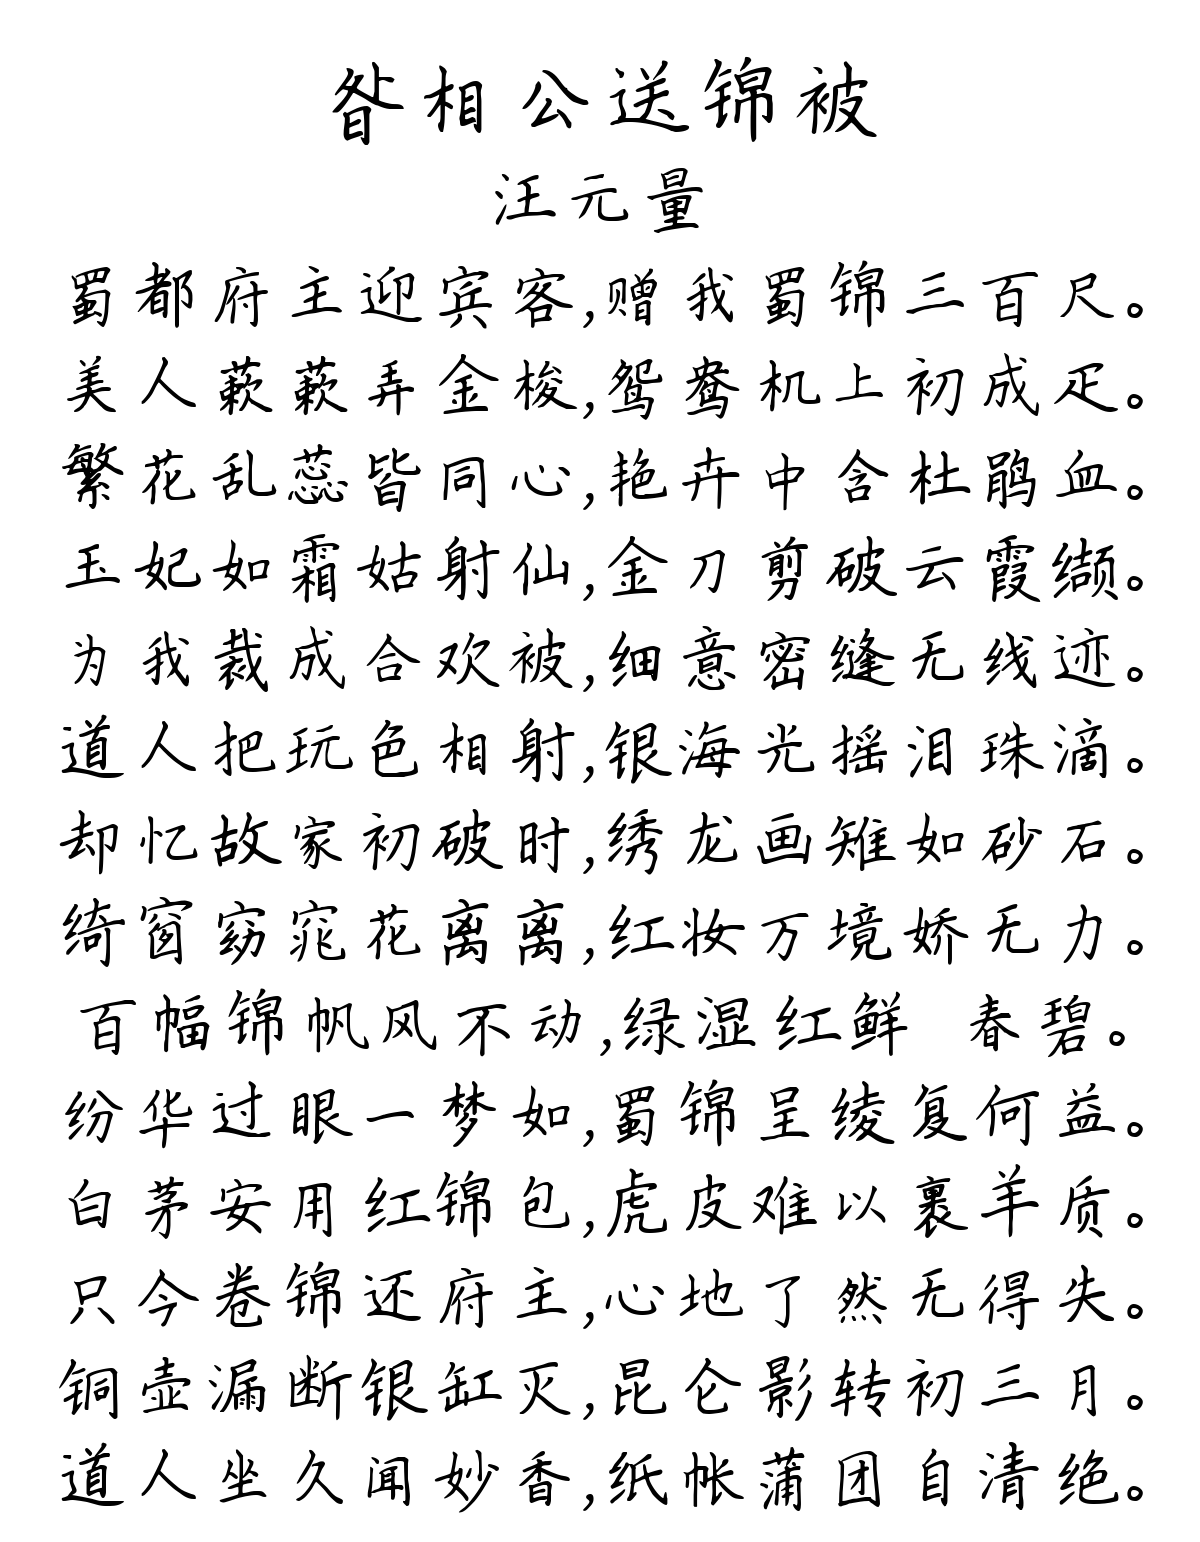 昝相公送锦被
汪元量
蜀都府主迎宾客,赠我蜀锦三百尺。
美人蔌蔌弄金梭,鸳鸯机上初成疋。
繁花乱蕊皆同心,艳卉中含杜鹃血。
玉妃如霜姑射仙,金刀剪破云霞缬。
为我裁成合欢被,细意密缝无线迹。
道人把玩色相射,银海光摇泪珠滴。
却忆故家初破时,绣龙画雉如砂石。
绮窗窈窕花离离,红妆万境娇无力。
百幅锦帆风不动,绿湿红鲜 春碧。
纷华过眼一梦如,蜀锦呈绫复何益。
白茅安用红锦包,虎皮难以裹羊质。
只今卷锦还府主,心地了然无得失。
铜壶漏断银缸灭,昆仑影转初三月。
道人坐久闻妙香,纸帐蒲团自清绝。